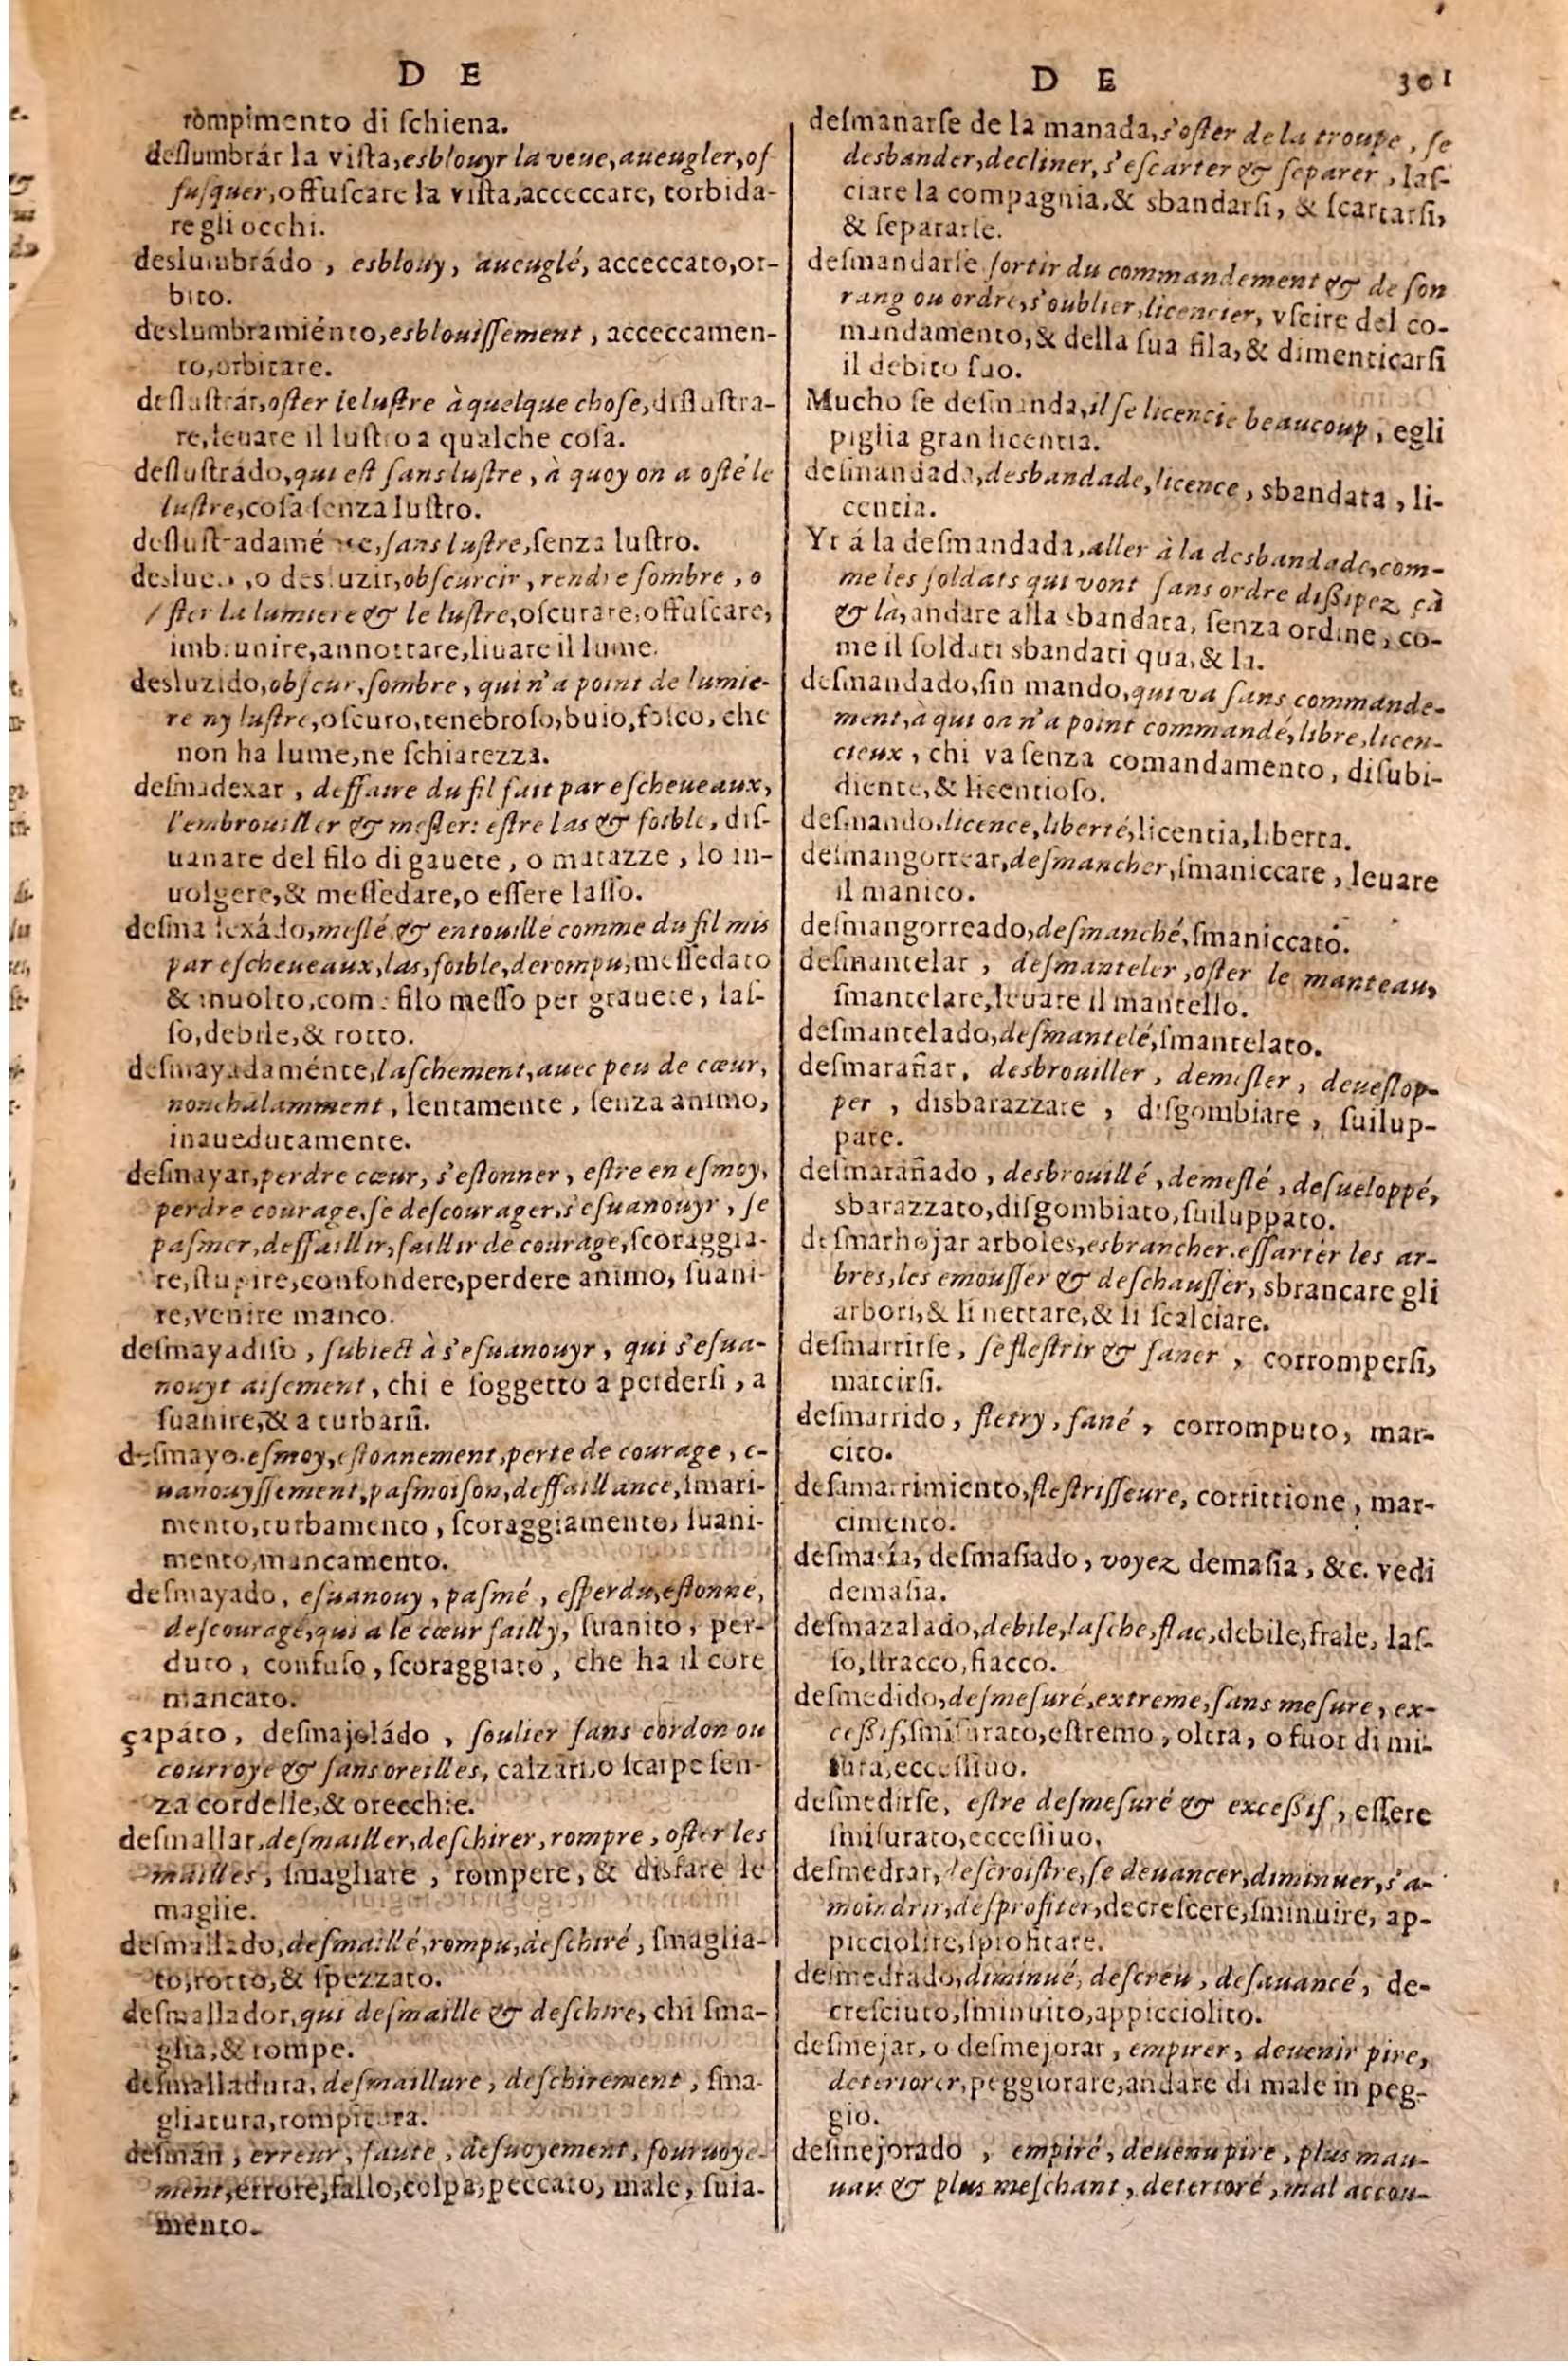 D E
rompimento di ſchiena.
deſlumbrár la viſta, esblouyr la veue, aueugler, of
fuſquer, offuſcare la viſta, acceccare, torbida-
re gli occhi.
deslumbrádo , esblouy, aueuglé, acceccato, or-
bito.
deslumbramiénto, esblouiſſement , acceccamen-
to, orbitare.
deſluſtrár, oſter le luſtre à quelque choſe, diſluſtra-
re, leuare il luſtro a qualche coſa.
deſluſtrádo, qui eſt ſans luſtre , à quoy on a oſté le
luſtre, coſa ſenza luſtro.
ſans luſtre, ſenza lustro.
o desluzir, obſcurcir , rendre ſombre , o
ſter la lumiere & le luſtre, oſcurare, offuſcare,
imbrunire, annottare, liuare il lume.
desluzido, obſcur, ſombre , qui n'a point de lumie-
re ny luſtre, oſcuro, tenebroſo, buio, foſco, che
non ha lume, ne ſchiarezza.
deſmadexar , deffaire du fil fait par eſcheueaux,
l'embrouiller & meſler: eſtre las & foible, diſ-
uanare del filo di gauete , o matazze , lo in-
uolgere, & meſſedare, o eſſere laſſo.
meſlé & entouillé comme du fil mis
par eſcheueaux, las, foible, derompu, meſſedato
& inuolto, come filo meſſo per grauete, laſ-
ſo, debile, & rotto.
deſmayadaménte, laſchement, auec peu de cœur,
nonchalamment , lentamente , ſenza animo,
inauedutamente.
deſmayar, perdre cœur, s'eſtonner , eſtre en eſmoy,
perdre courage, ſe deſcourager, s'eſuanouyr , ſe
paſmer, deffaillir, faillir de courage, ſcoraggia-
re, ſtupire, confondere, perdere animo, ſuani-
re, venire manco.
deſmayadiſo , ſubiect à s'eſuanouyr , qui s'eſua-
nouyt aiſement , chi e ſoggetto a perderſi , a
ſuanire, & a turbarſi.
deſmayo. eſmoy, eſtonnement, perte de courage , e-
uanouyſſement, paſmoiſon, deffaillance, ſmari-
mento, turbamento , ſcoraggiamento, ſuani-
mento, mancamento.
deſmayado, eſuanouy , paſmé , eſperdu, eſtonné,
deſcouragé, qui a le cœur failly, ſuanito , per-
duto , confuſo , ſcoraggiato , che ha il core
mancato.
çapáto , deſmajoládo , ſoulier ſans cordon ou
courroye & ſans oreilles, calzari, o ſcarpe ſen-
za cordelle, & orecchie.
deſmallar, deſmailler, deſchirer, rompre , oſter les
mailles , ſmagliare , rompere, & disfare le
maglie.
deſmallado, deſmaillé, rompu, deſchiré , ſmaglia-
to, rotto, & ſpezzato.
deſmallador, qui deſmaille & deſchire, chi ſma-
glia, & rompe.
deſmalladura, deſmaillure , deſchirement , ſma-
gliatura, rompitura.
deſmán , erreur , faute , deſuoyement, fouruoye-
ment, errore, fallo, colpa, peccato, male, ſuia-
mento.
D E 301
deſmanarſe de la manada, s'oſter de la troupe , ſe
desbander, decliner, s'eſcarter & ſeparer , laſ-
ciare la compagnia, & sbandarſi, & ſcartarſi,
& ſepararſe.
deſmandarſe ſortir du commandement & de ſon
rang ou ordre, s'oublier, licencier, vſcire del co-
mandamento, & della ſua fila, & dimenticarſi
il debito ſuo.
Mucho ſe deſmanda, il ſe licencie beaucoup , egli
piglia gran licentia.
deſmandada, desbandade, licence , sbandata , li-
centia.
Yr á la deſmandada, aller à la desbandade, com-
me les ſoldats qui vont ſans ordre diſſipez çà
& là, andare alla sbandata, ſenza ordine , co-
me il ſoldati sbandati qua, & la.
deſmandado, ſin mando, qui va ſans commande-
ment, à qui on n'a point commandé, libre, licen-
cieux , chi va ſenza comandamento, diſubi-
diente, & licentioſo.
deſmando, licence, liberté, licentia, liberta.
deſmangorrear, deſmancher, ſmaniccare , leuare
il manico.
deſmangorreado, deſmanché, ſmaniccato.
deſmantelar , deſmanteler, oſter le manteau,
ſmantelare, leuare il mantello.
deſmantelado, deſmantelé, ſmantelato.
deſmarañar, desbrouiller , demeſler , deueſlop-
per , disbarazzare , diſgombiare , ſuilup-
pare.
deſmarañado , desbrouillé , demeſlé , deſueloppé,
sbarazzato, diſgombiato, ſuiluppato.
deſmarhojar arboles, esbrancher. eſſarter les ar-
bres, les emouſſer & deſchauſſer, sbrancare gli
arbori, & li nettare, & li ſcalciare.
deſmarrirſe , ſe fleſtrir & faner , corromperſi,
marcirſi.
deſmarrido , fletry , fané , corromputo, mar-
cito.
deſamarrimiento, fleſtriſſeure, corrittione , mar-
cimento.
deſmaſía, deſmaſiado , voyez demaſia , &c. vedi
demaſia.
deſmazalado, debile, laſche, flac, debile, frale, laſ-
ſo, ſtracco, fiacco.
deſmedido, deſmeſuré, extreme, ſans meſure, ex-
ceſſif, ſmiſurato, eſtremo, oltra, o fuor di mi-
ſura, ecceſſiuo.
deſmedirſe, eſtre deſmeſuré & exceſſif , eſſere
ſmiſurato, ecceſſiuo.
deſmedrar, deſcroiſtre, ſe deuancer, diminuer, s'a-
moindrir, deſprofiter, decreſcere, ſminuire, ap-
picciolire, ſprofitare.
deſmedrado, diminué, deſcreu , deſauancé, de-
creſciuto, ſminuito, appicciolito.
deſmejar, o deſmejorar , empirer, deuenir pire,
deteriorer, peggiorare, andare di male in peg-
gio.
deſmejorado , empiré, deuenu pire , plus mau-
uau & plus meſchant , deterioré , mal accou-